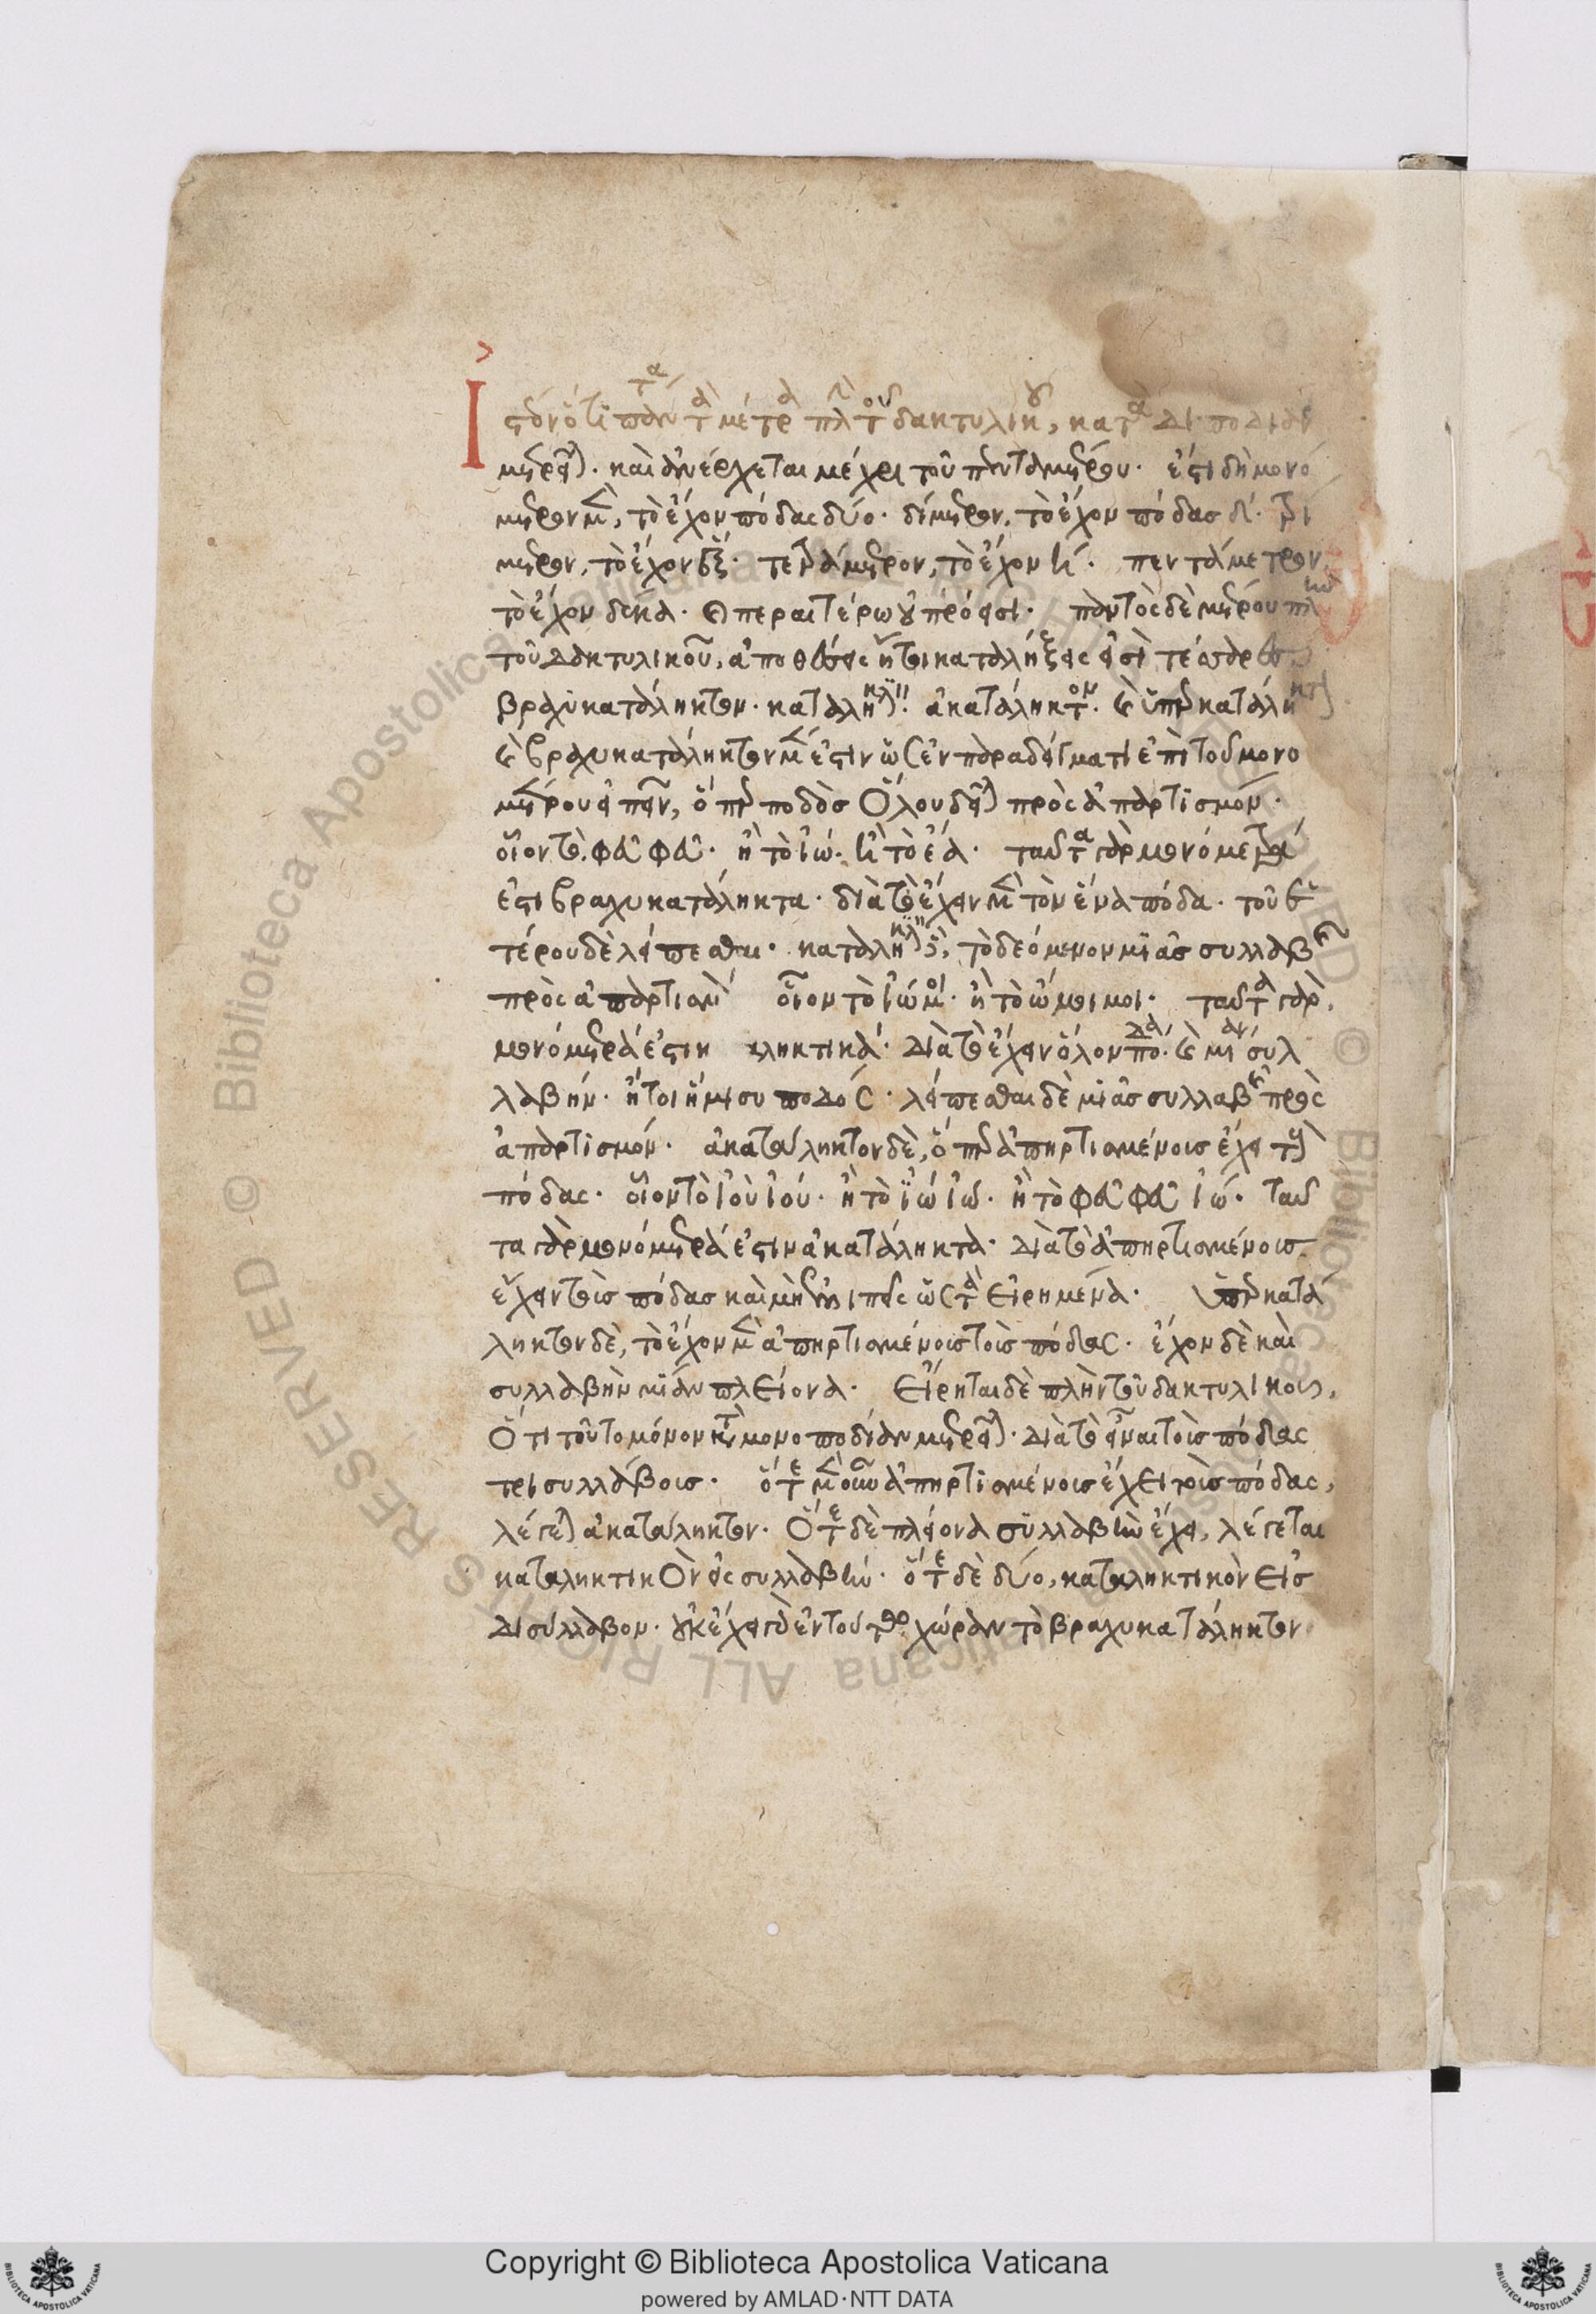 Ἰστέον ὅτι πάντα τὰ μέτρα πλὴν τοῦ δακτυλικοῦ, κατὰ διποδίαν
μετρεῖται. καὶ ἀνέρχεται μέχρι τοῦ πενταμέτρου. ἔστι δὴ μονό
μετρον μὲν, τὸ ἔχον πόδας δύο. δίμετρον, τὸ ἔχον πόδας δ΄. τρί
μετρον, τὸ ἔχον ἕξ. τετράμετρον, τὸ ἔχον η΄. πεντάμετρον,
τὸ ἔχον δέκα. περαιτέρω οὐ πρόεισι. παντὸς δὲ μέτρου πλὴν
τοῦ δακτυλικοῦ, ἀποθέσεις ἤτοι καταλήξεις εἰσὶ τέσσαρες
βραχυκατάληκτον. καταληκτικόν. ἀκατάληκτον. καὶ ὑπερκατάληκτον
καὶ βραχυκατάληκτον μέν ἐστιν ὡς ἐν παραδείγματι ἐπὶ τοῦ μονο
μέτρου εἰπεῖν, ὅπερ ποδὸς ὅλου δεῖται πρὸς ἀπαρτισμόν.
οἷον τὸ, φεῦ φεῦ. ἢ τὸ ἰώ. ἢ τὸ ἔα. ταῦτα γὰρ μονόμετρά
ἐστι βραχυκατάληκτα. διὰ τὸ ἔχειν μὲν τὸν ἕνα πόδα. τοῦ ἑ
τέρου δὲ λείπεσθαι. καταληκτικὸν δὲ, τὸ δεόμενον μιᾶς συλλαβῆς
πρὸς ἀπαρτισμὸν οἷον τὸ ἰώ μοι. ἢ τὸ ὤμοι μοι. ταῦτα γὰρ
μονόμετρά ἐστι κ ληκτικά. διὰ τὸ ἔχειν ὅλον πόδα. καὶ μίαν συλ
λαβήν. ἤτοι ἥμισυ ποδός. λείπεσθαι δὲ μιᾶς συλλαβῆς πρὸς
ἀπαρτισμόν. ἀκατάληκτον δὲ, ὅπερ ἀπηρτισμένους ἔχει τοὺς
πόδας. οἷον τὸ ἰοὺ ἰού. ἢ τὸ ἰώ ἰώ. ἢ τὸ φεῦ φεῦ ἰώ. ταῦ
τα γὰρ μονόμετρά ἐστιν ἀκατάληκτα. διὰ τὸ ἀπηρτισμένους
ἔχειν τοὺς πόδας καὶ μὴ ἐλλιπεῖς ὡς τὰ εἰρημένα. ὑπερκατά
ληκτον δὲ, τὸ ἔχον μὲν ἀπηρτισμένους τοὺς πόδας. ἔχον δὲ καὶ
συλλαβὴν μίαν πλείονα. εἴρηται δὲ πλὴν τοῦ δακτυλικοῦ,
ὅτι τοῦτο μόνον κατὰ μονοποδίαν μετρεῖται. διὰ τὸ εἶναι τοὺς πόδας
τρισυλλάβους. ὅτε μὲν οὖν ἀπηρτισμένους ἔχει τοὺς πόδας,
λέγεται ἀκατάληκτον. ὅτε δὲ πλείονα συλλαβὴν ἔχει, λέγεται
καταληκτικὸν εἰς συλλαβήν. ὅτε δὲ δύο, καταληκτικὸν εἰς
δισύλλαβον. οὐκ ἔχει γὰρ ἐν τούτῳ χώραν τὸ βραχυκατάληκτον
Copyright © Biblioteca Apostolica Vaticana
powered by AMLAD·NTT DATA